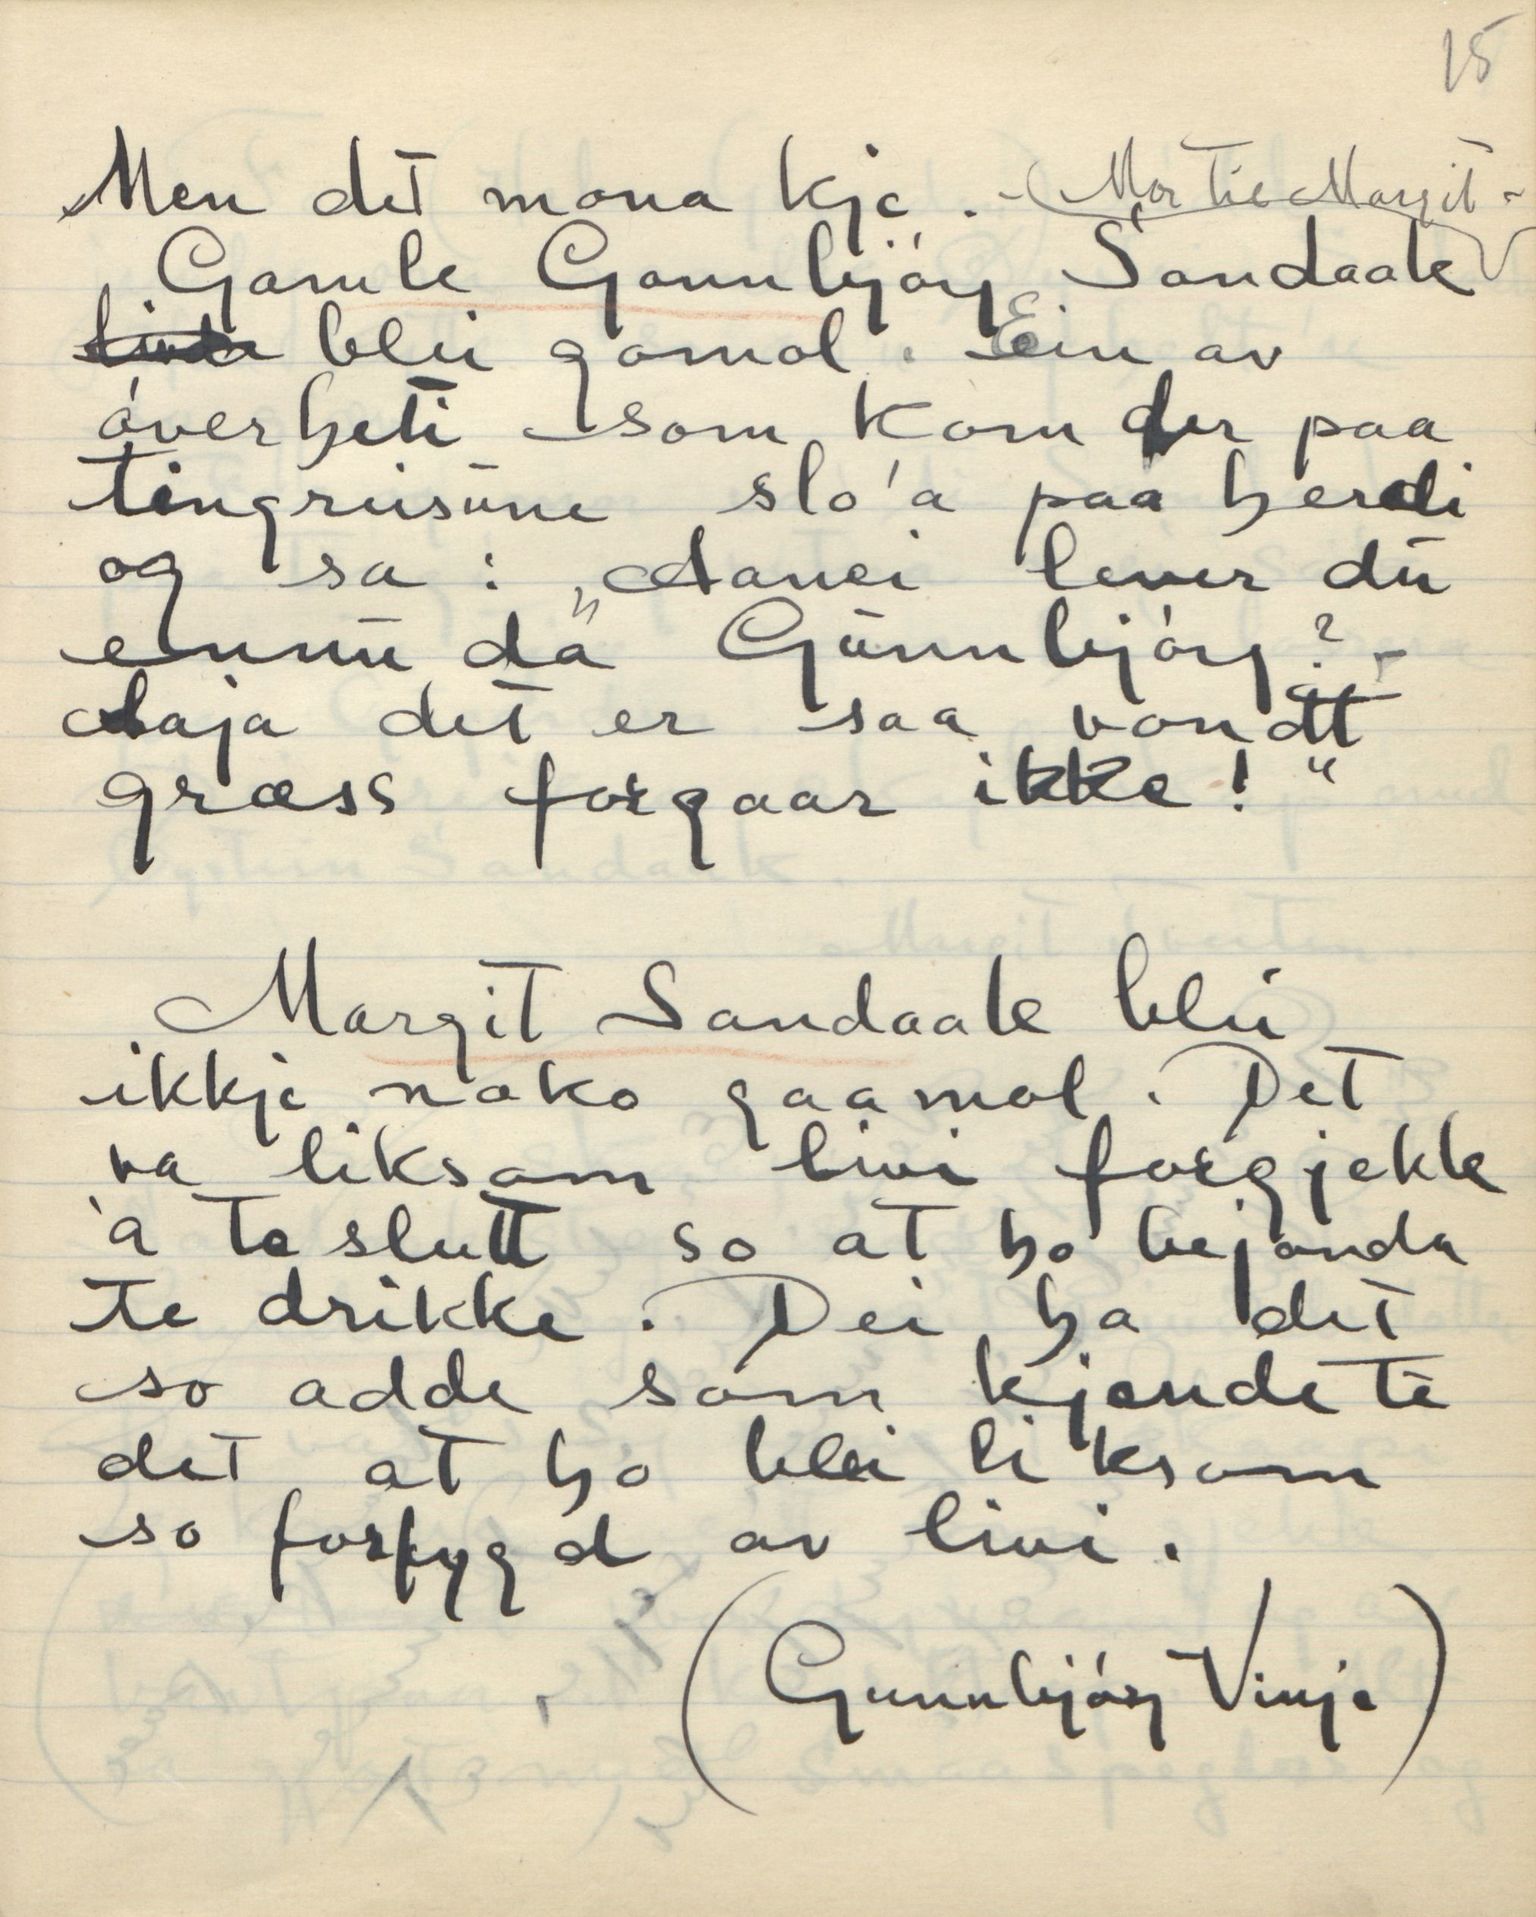 15
Men det mona kje. - (Mor til Margit -
Gamle Gunnbjórg Sandaak
blei gomol. Ein av
óverheti som kom der paa
tingreisune slo'a paa herdi
og sa: „Aanei lever dú
ennú da Gúnnbjórg? -
Aaja det er saa vondt
græss forgaar ikke!"
Margit Sandaak blei
ikkje noko gaamol. Det
va liksom livi forgjekk
'a te slutt so at ho bejonda
te drikke. Dei ha det
so adde som kjende te
det at ho blei liksom
so forfygd av livi.
(Gunnbjórg Vinje)